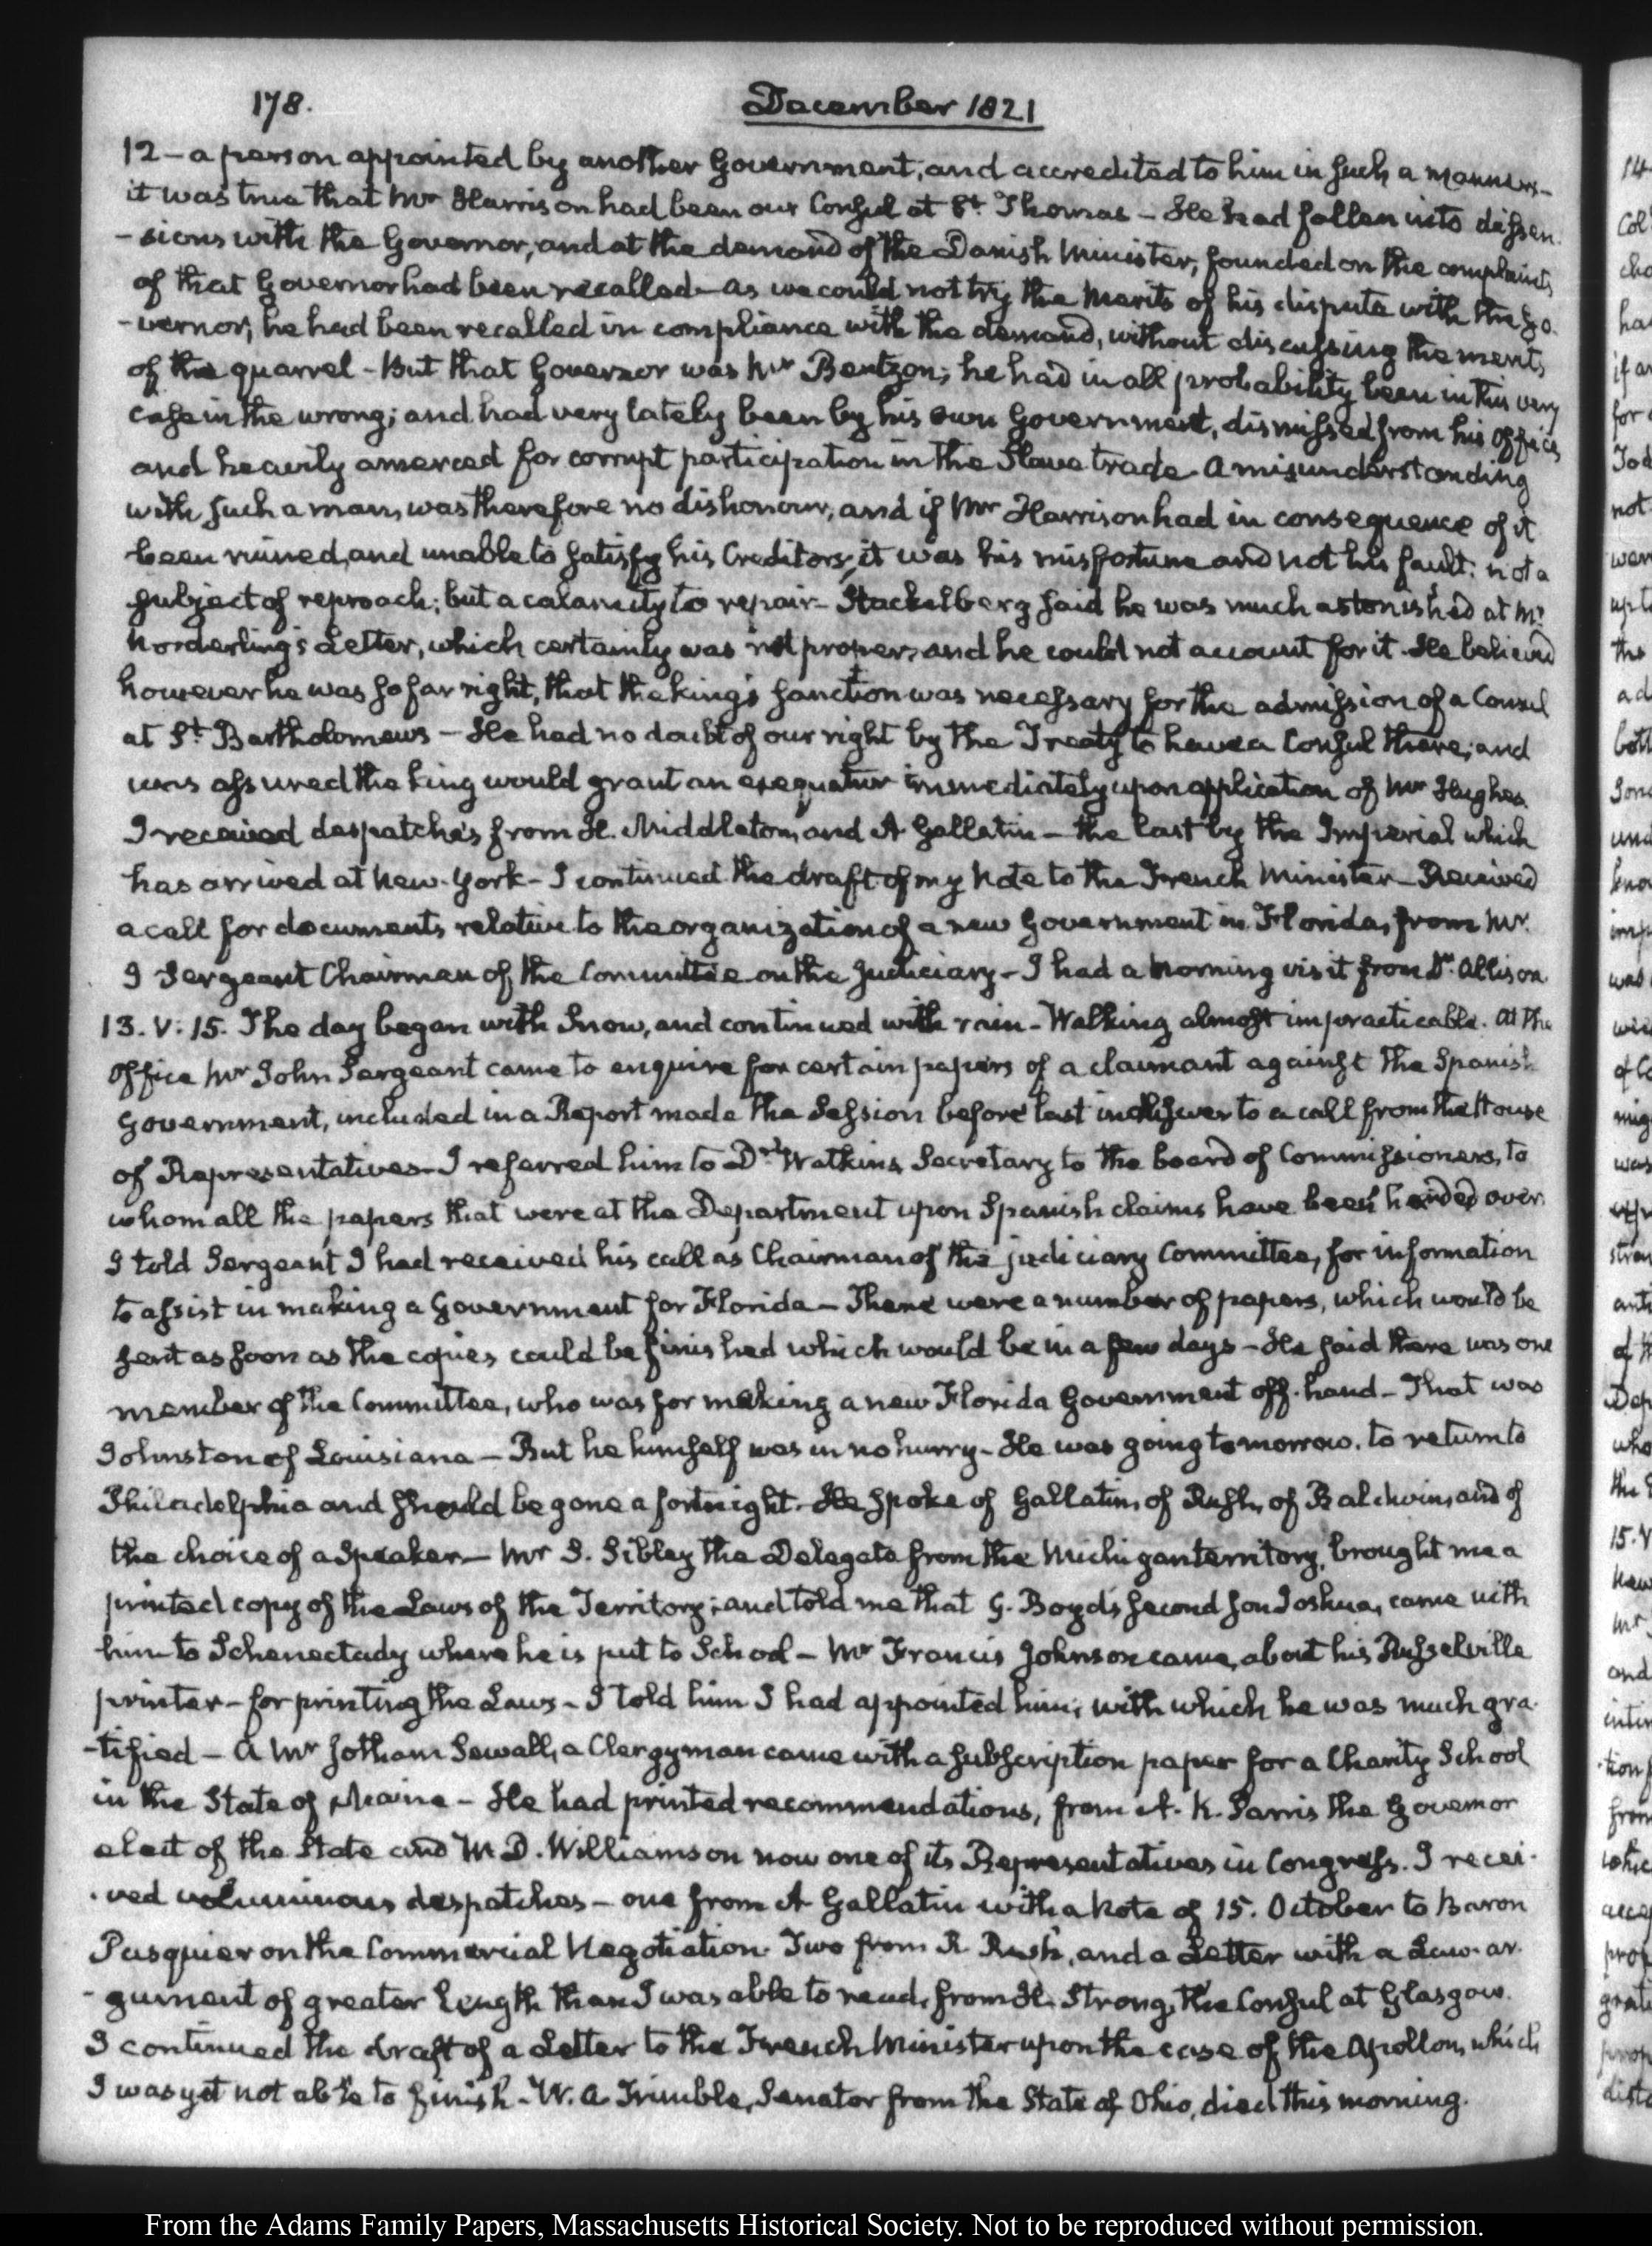 178.
December 1821
12 – a person appointed by another Government, and accredited to him in such a manner –
it was true that Mr Harrison had been our Consul at St. Thomas – He had fallen into dissen-
-sions with the Governor, and at the demand of the Danish Minister, founded on the complaints
of that Governor had been recalled – as we could not try the merits of his dispute with the Go-
-vernor, he had been recalled in compliance with the demand, without discussing the merits
of the quarrel – But that Governor was Mr Bentzon; he had in all probability been in this very
case in the wrong; and had very lately been by his own Government, dismissed from his Office,
and heavily amerced for corrupt participation in the Slave trade – A misunderstanding
with such a man, was therefore no dishonour, and if Mr Harrison had in consequence of it
been ruined, and unable to satisfy his Creditors, it was his misfortune and not his fault; not a
subject of reproach; but a calamity to repair – Stackelberg said he was much astonished at Mr
Norderling's Letter, which certainly was not proper, and he could not account for it. He believed
however he was so far right, that the king's sanction was necessary for the admission of a Consul
at St. Bartholomews – He had no doubt of our right by the Treaty to have a Consul there; and
was assured the king would grant an exequatur immediately upon application of Mr Hughes.
I received despatches from H. Middleton, and A Gallatin – the last by the Imperial which
has arrived at New-York – I continued the draft of my Note to the French Minister – Received
a call for documents relative to the organization of a new Government in Florida, from Mr.
J Sergeant Chairman of the Committee on the Judiciary – I had a morning visit from Dr. Allison.
13. V: 15. The day began with Snow, and continued with rain – Walking almost impracticable. At the
Office Mr John Sergeant came to enquire for certain papers of a claimant against the Spanish
Government, included in a Report made the Session before last in answer to a call from the House
of Representatives – I referred him to Dr. Watkins Secretary to the board of Commissioners, to
whom all the papers that were at the Department upon Spanish claims have been handed over.
I told Sergeant I had received his call as Chairman of the judiciary Committee, for information
to assist in making a Government for Florida – There were a number of papers, which would be
sent as soon as the copies could be finished which would be in a few days – He said there was one
member of the Committee, who was for making a new Florida Government off-hand – That was
Johnston of Louisiana – But he himself was in no hurry – He was going tomorrow, to return to
Philadelphia and should be gone a fortnight. He spoke of Gallatin, of Rush, of Baldwin, and of
the choice of a Speaker – Mr S. Sibley the Delegate from the Michigan territory, brought me a
printed copy of the Laws of the Territory; and told me that G. Boyd's second son Joshua, came with
him to Schenectady where he is put to School – Mr Francis Johnson came, about his Russelville
printer – for printing the Laws – I told him I had appointed him; with which he was much gra-
-tified – A Mr Jotham Sewall, a Clergyman came with a subscription paper for a Charity School
in the State of Maine – He had printed recommendations, from A. K. Parris the Governor
elect of the State and W. D. Williamson now one of its Representatives in Congress. I recei-
-ved voluminous despatches – one from A Gallatin with a Note of 15. October to Baron
Pasquier on the Commercial Negotiation. Two from R. Rush, and a Letter with a Law-ar-
-gument of greater length than I was able to read, from H. Strong, the Consul at Glasgow.
I continued the draft of a Letter to the French Minister upon the case of the Apollon, which
I was yet not able to finish – W. A Trimble, Senator from the State of Ohio, died this morning.
From the Adams Family Papers, Massachusetts Historical Society. Not to be reproduced without permission.